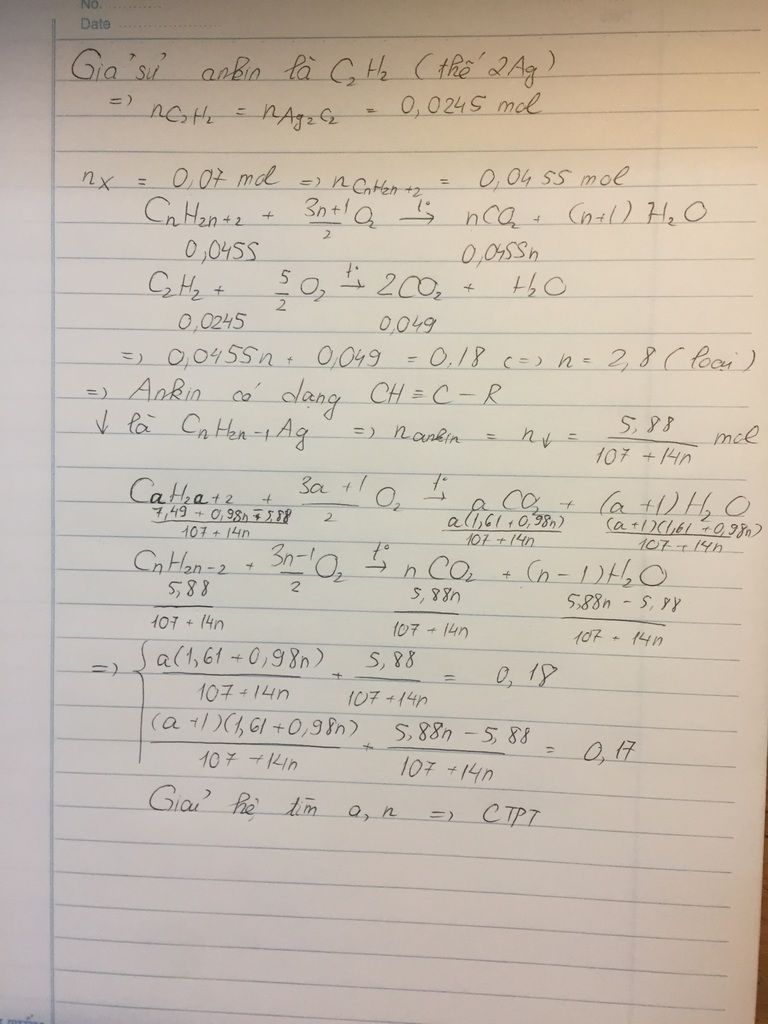 No. ..................
Date ..................
Giả sử ankin là C₂H₂ (thế 2Ag)
=> nC₂H₂ = nAg₂C₂ = 0,0245 mol
nX = 0,07 mol => nCnH2n+2 = 0,0455 mol
CnH2n+2 + (3n+1)/2 O₂ →(t°) nCO₂ + (n+1) H₂O
0,0455 0,0455n
C₂H₂ + 5/2 O₂ →(t°) 2CO₂ + H₂O
0,0245 0,049
=> 0,0455n + 0,049 = 0,18 <=> n = 2,8 (loại)
=> Ankin có dạng CH ≡ C – R
↓ là CnH2n-1Ag => n ankin = n↓ = 5,88/(107 + 14n) mol
CaH2a+2 + (3a + 1)/2 O₂ →(t°) a CO₂ + (a + 1) H₂O
(7,49 + 0,98n - 5,88)/(107 + 14n) a(1,61 + 0,98n)/(107 + 14n) (a+1)(1,61 + 0,98n)/(107 + 14n)
CnH2n-2 + (3n-1)/2 O₂ →(t°) n CO₂ + (n-1) H₂O
5,88/(107 + 14n) 5,88n/(107 + 14n) (5,88n - 5,88)/(107 + 14n)
=> { a(1,61 + 0,98n)/(107 + 14n) + 5,88/(107 + 14n) = 0,18
(a + 1)(1,61 + 0,98n)/(107 + 14n) + (5,88n - 5,88)/(107 + 14n) = 0,17
Giải hệ tìm a, n => CTPT